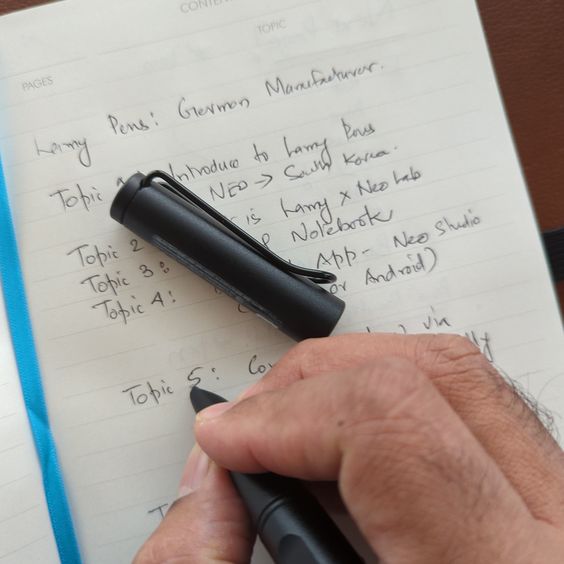 CONTEN
TOPIC
PAGES
Lamy Pens: German Manufacturer.
Topic Introduce to Lamy Pens
NEO → South Korea.
Topic 2 is Lamy x Neo Lab
Topic 3: Notebook
Topic 4: App - Neo Studio
or Android)
Topic 5: Co via